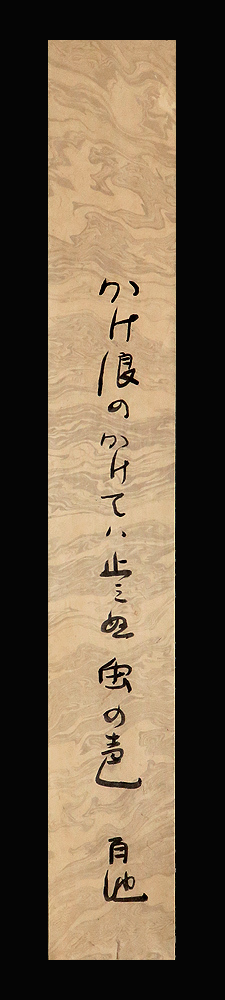 かけ浪のかけてハ止ミぬ虫の声 百池